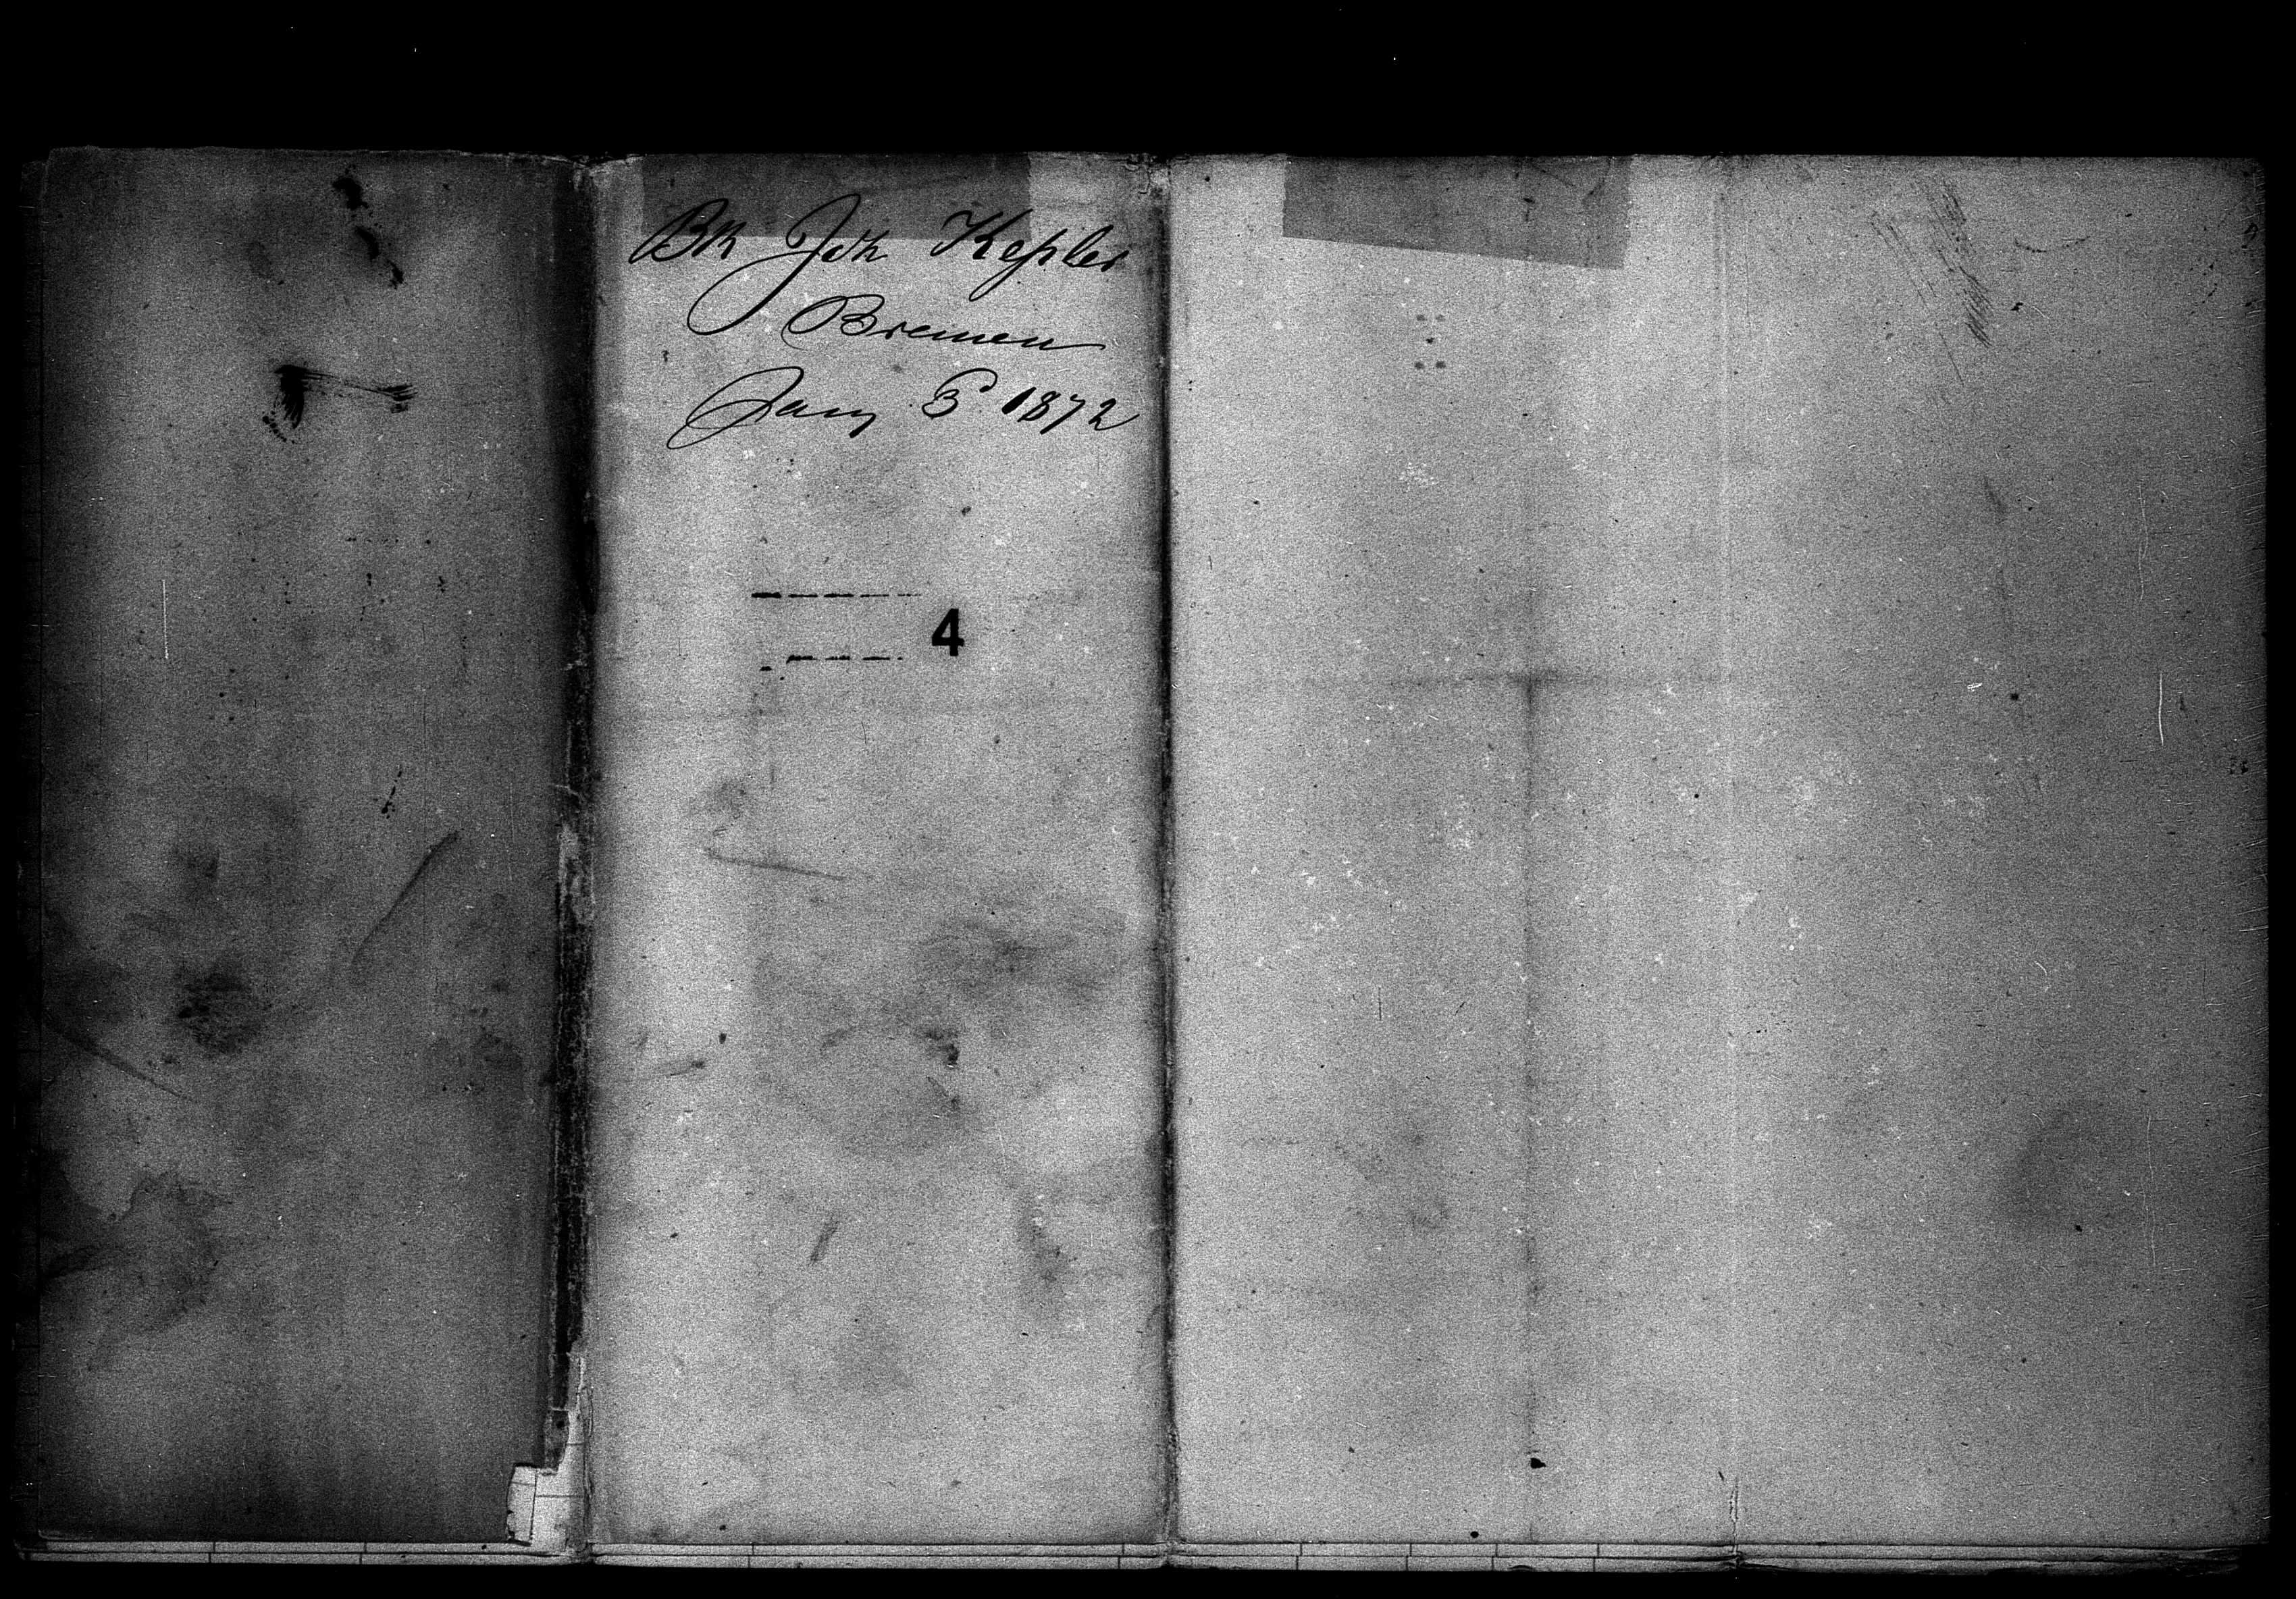 Bk Joh Kepler
Bremen
Jany 5 1872
4